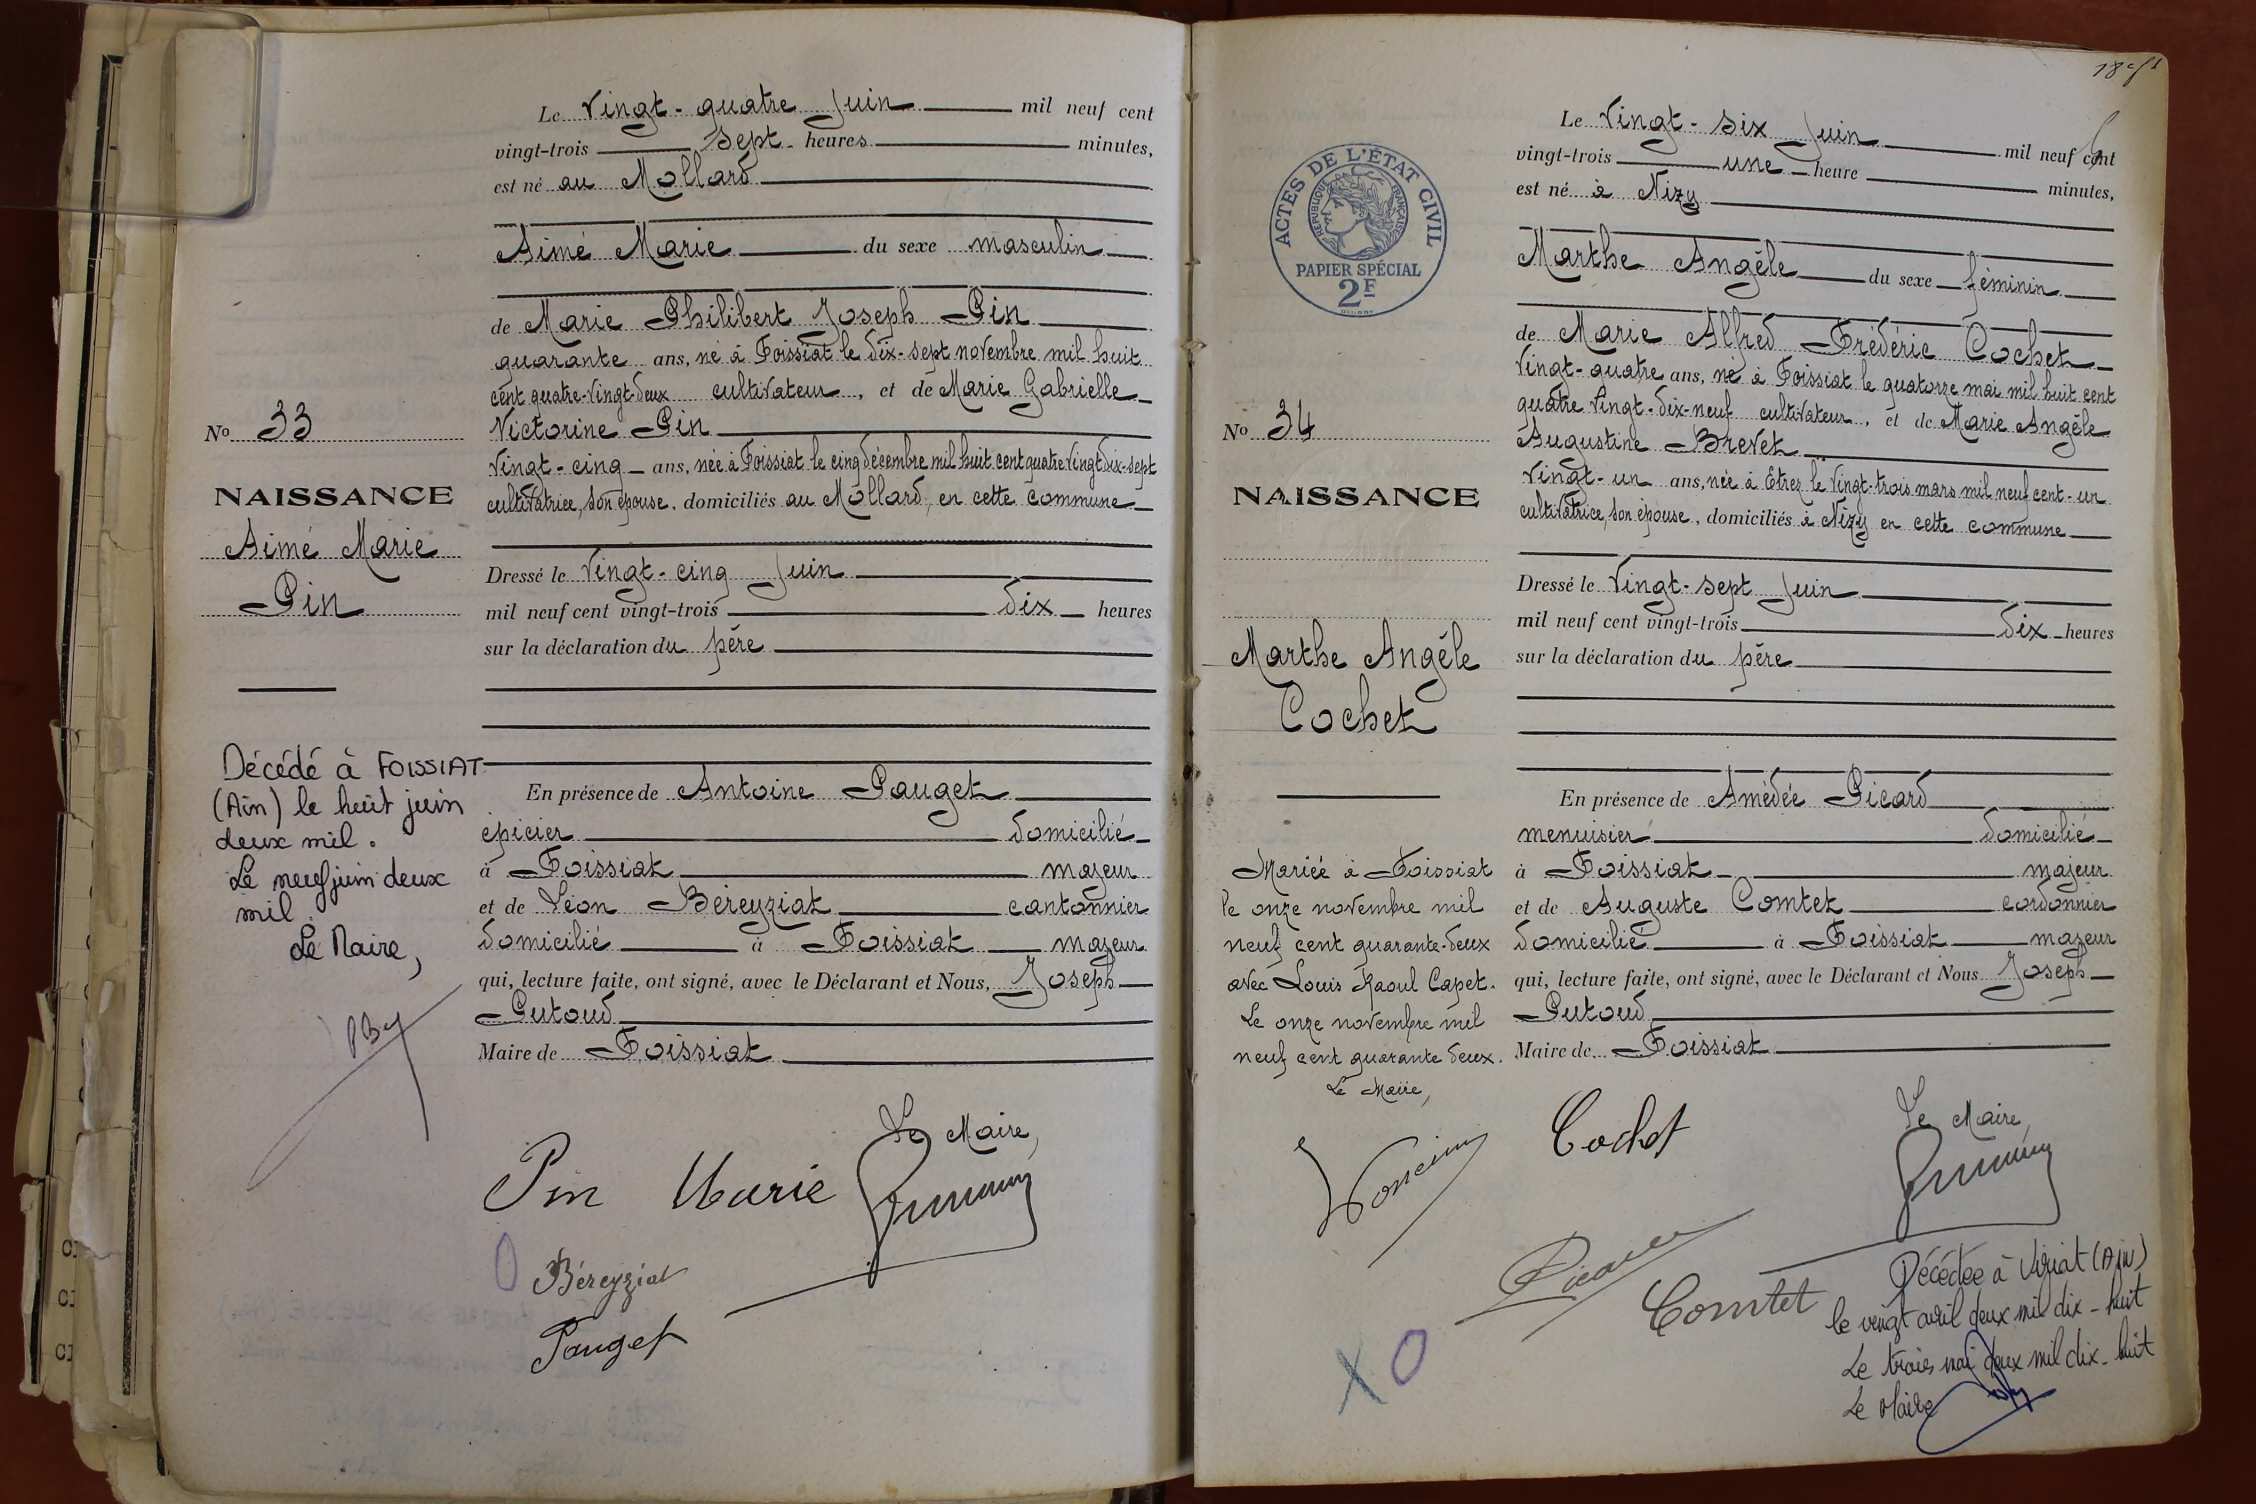 Le Vingt-quatre Juin mil neuf cent
vingt-trois sept heures minutes,
est né au Mollard
Aimé Marie du sexe masculin
de Marie Philibert Joseph Pin
quarante ans, né à Foissiat le dix-sept novembre mil huit
cent quatre-vingt-deux cultivateur, et de Marie Gabrielle
Victorine Pin
Vingt-cinq ans, née à Foissiat le cinq décembre mil huit cent quatre vingt dix-sept
cultivatrice, son épouse, domiciliés au Mollard, en cette commune
Dressé le Vingt-cinq Juin
mil neuf cent vingt-trois dix heures
sur la déclaration du père
En présence de Antoine Pauget
épicier domicilié
à Foissiat majeur
et de Léon Béreyziat cantonnier
domicilié à Foissiat majeur
qui, lecture faite, ont signé, avec le Déclarant et Nous, Joseph
Putoud
Maire de Foissiat
Le Maire,
Pin Marie
Béreyziat
Pauget
No 33
NAISSANCE
Aimé Marie
Pin
Décédé à FOISSIAT
(Ain) le huit juin
deux mil.
Le neuf juin deux
mil.
Le Maire,
18 f
Le Vingt-six Juin mil neuf cent
vingt-trois une heure minutes,
est né à Nizy
Marthe Angèle du sexe féminin
de Marie Alfred Frédéric Cochet
Vingt-quatre ans, né à Foissiat le quatorze mai mil huit cent
quatre Vingt-dix-neuf cultivateur, et de Marie Angèle
Augustine Brevet
Vingt-un ans, née à Etrez le Vingt-trois mars mil neuf cent-un
cultivatrice, son épouse, domiciliés à Nizy en cette commune
Dressé le Vingt-sept Juin
mil neuf cent vingt-trois dix heures
sur la déclaration du père
En présence de Amédée Picard
menuisier domicilié
à Foissiat majeur
et de Auguste Comtet cordonnier
domicilié à Foissiat majeur
qui, lecture faite, ont signé, avec le Déclarant et Nous Joseph
Putoud
Maire de Foissiat
Le Maire,
Cochet
Picard
Comtet
Décédée à Viriat (Ain)
le vingt avril deux mil dix-huit
Le trois mai deux mil dix-huit
Le Maire
ACTES DE L'ÉTAT CIVIL
RÉPUBLIQUE FRANÇAISE
PAPIER SPÉCIAL
2F
No 34
NAISSANCE
Marthe Angèle
Cochet
Mariée à Foissiat
le onze novembre mil
neuf cent quarante-deux
avec Louis Raoul Capet.
Le onze novembre mil
neuf cent quarante deux.
Le Maire,
X O